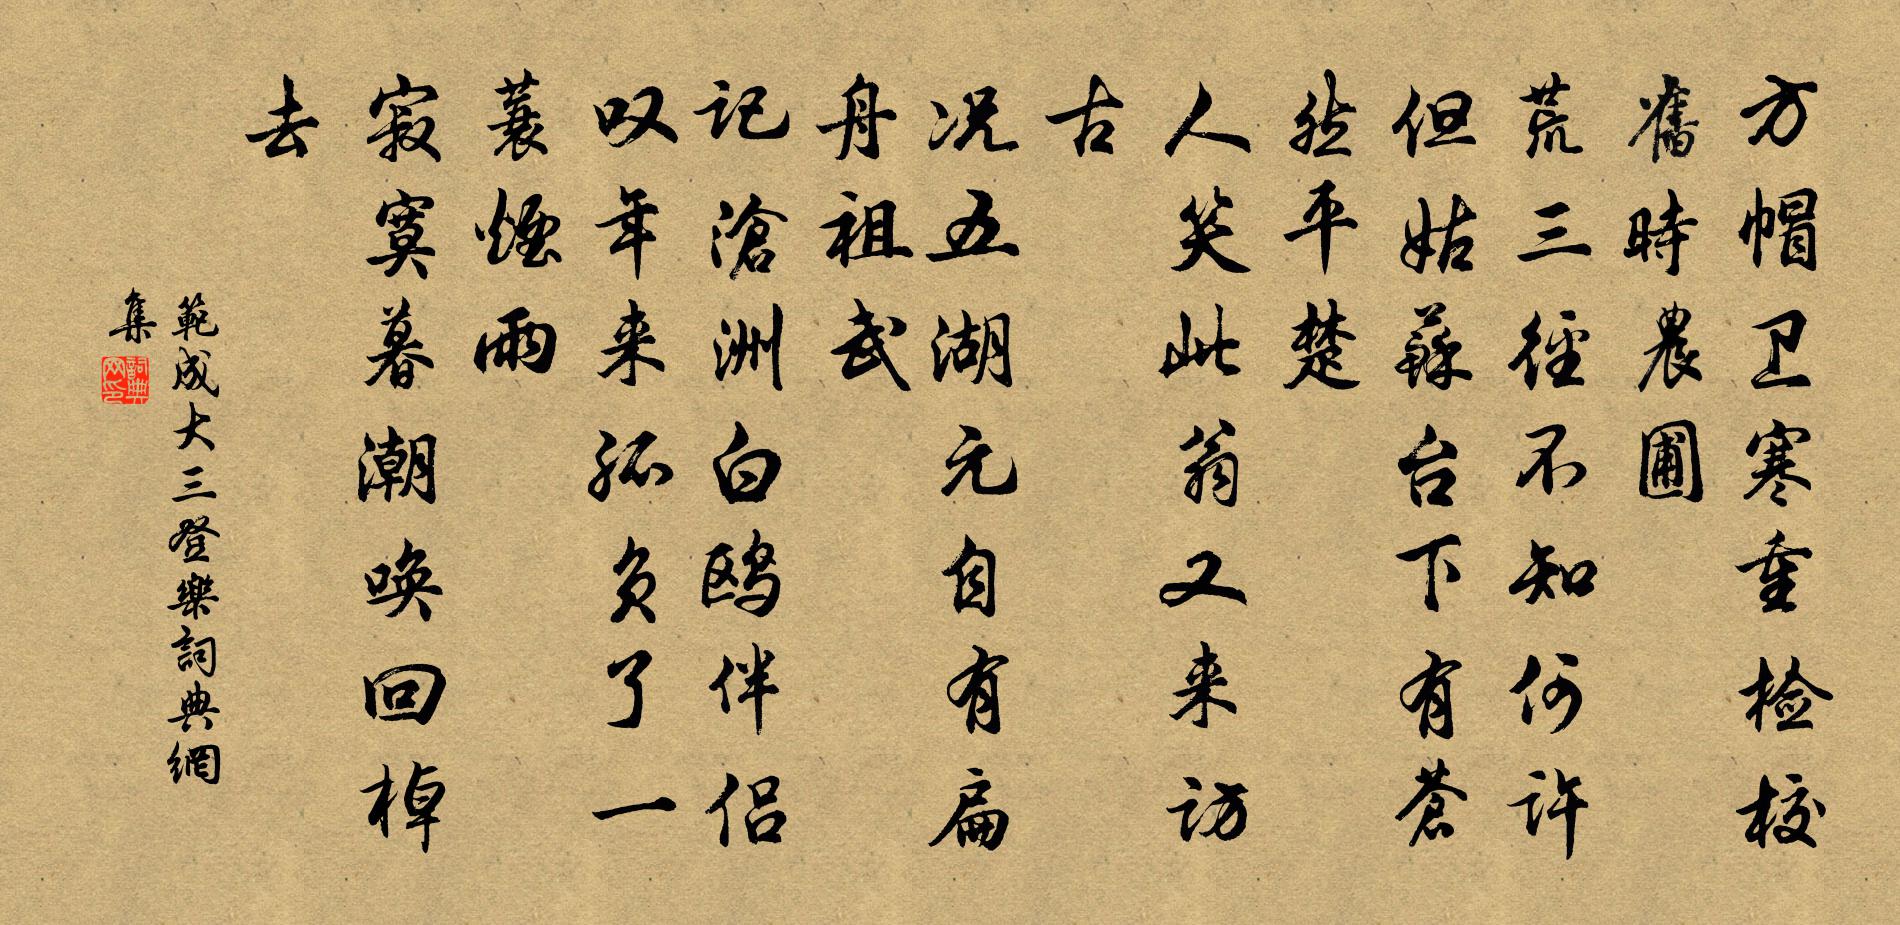 方帽卫寒重检校
舊時農圃
荒三徑不知何许
但姑蘇台下有蒼
然平楚
人笑此翁又来访
古
况五湖元自有扁
舟祖武
记滄洲白鸥伴侣
叹年来孤负了一
蓑煙雨
寂寞暮潮唤回棹
去
範成大三登樂詞典網
集
詞典网印